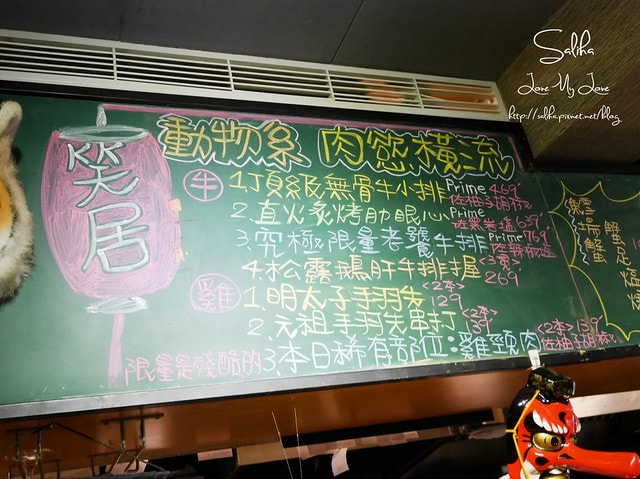 Saliha
Love My Love
http://saliha.pixnet.net/blog
笑居
動物系 肉慾橫流
牛
1.頂級無骨牛小排 Prime 469 佐柚子胡椒
2.直火炙烤肋眼心 Prime 639 佐
3.究極限量老饕牛排 Prime 769 佐
4.松露鵝肝牛排握 <2貫> 269
雞
1.明太子手羽先 <2本> 129
2.元祖手羽先串打 <2本> 139
3.本日稀有部位:雞頸肉 <2本> 139 佐柚子胡椒
限量是殘酷的
鱈場蟹
蟹足